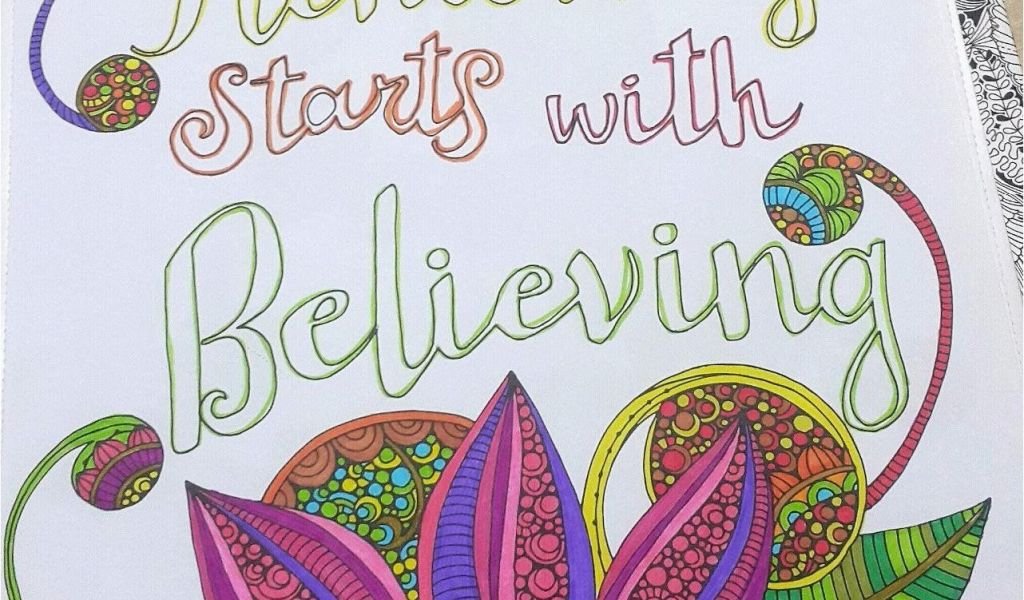 Starts with
Believing